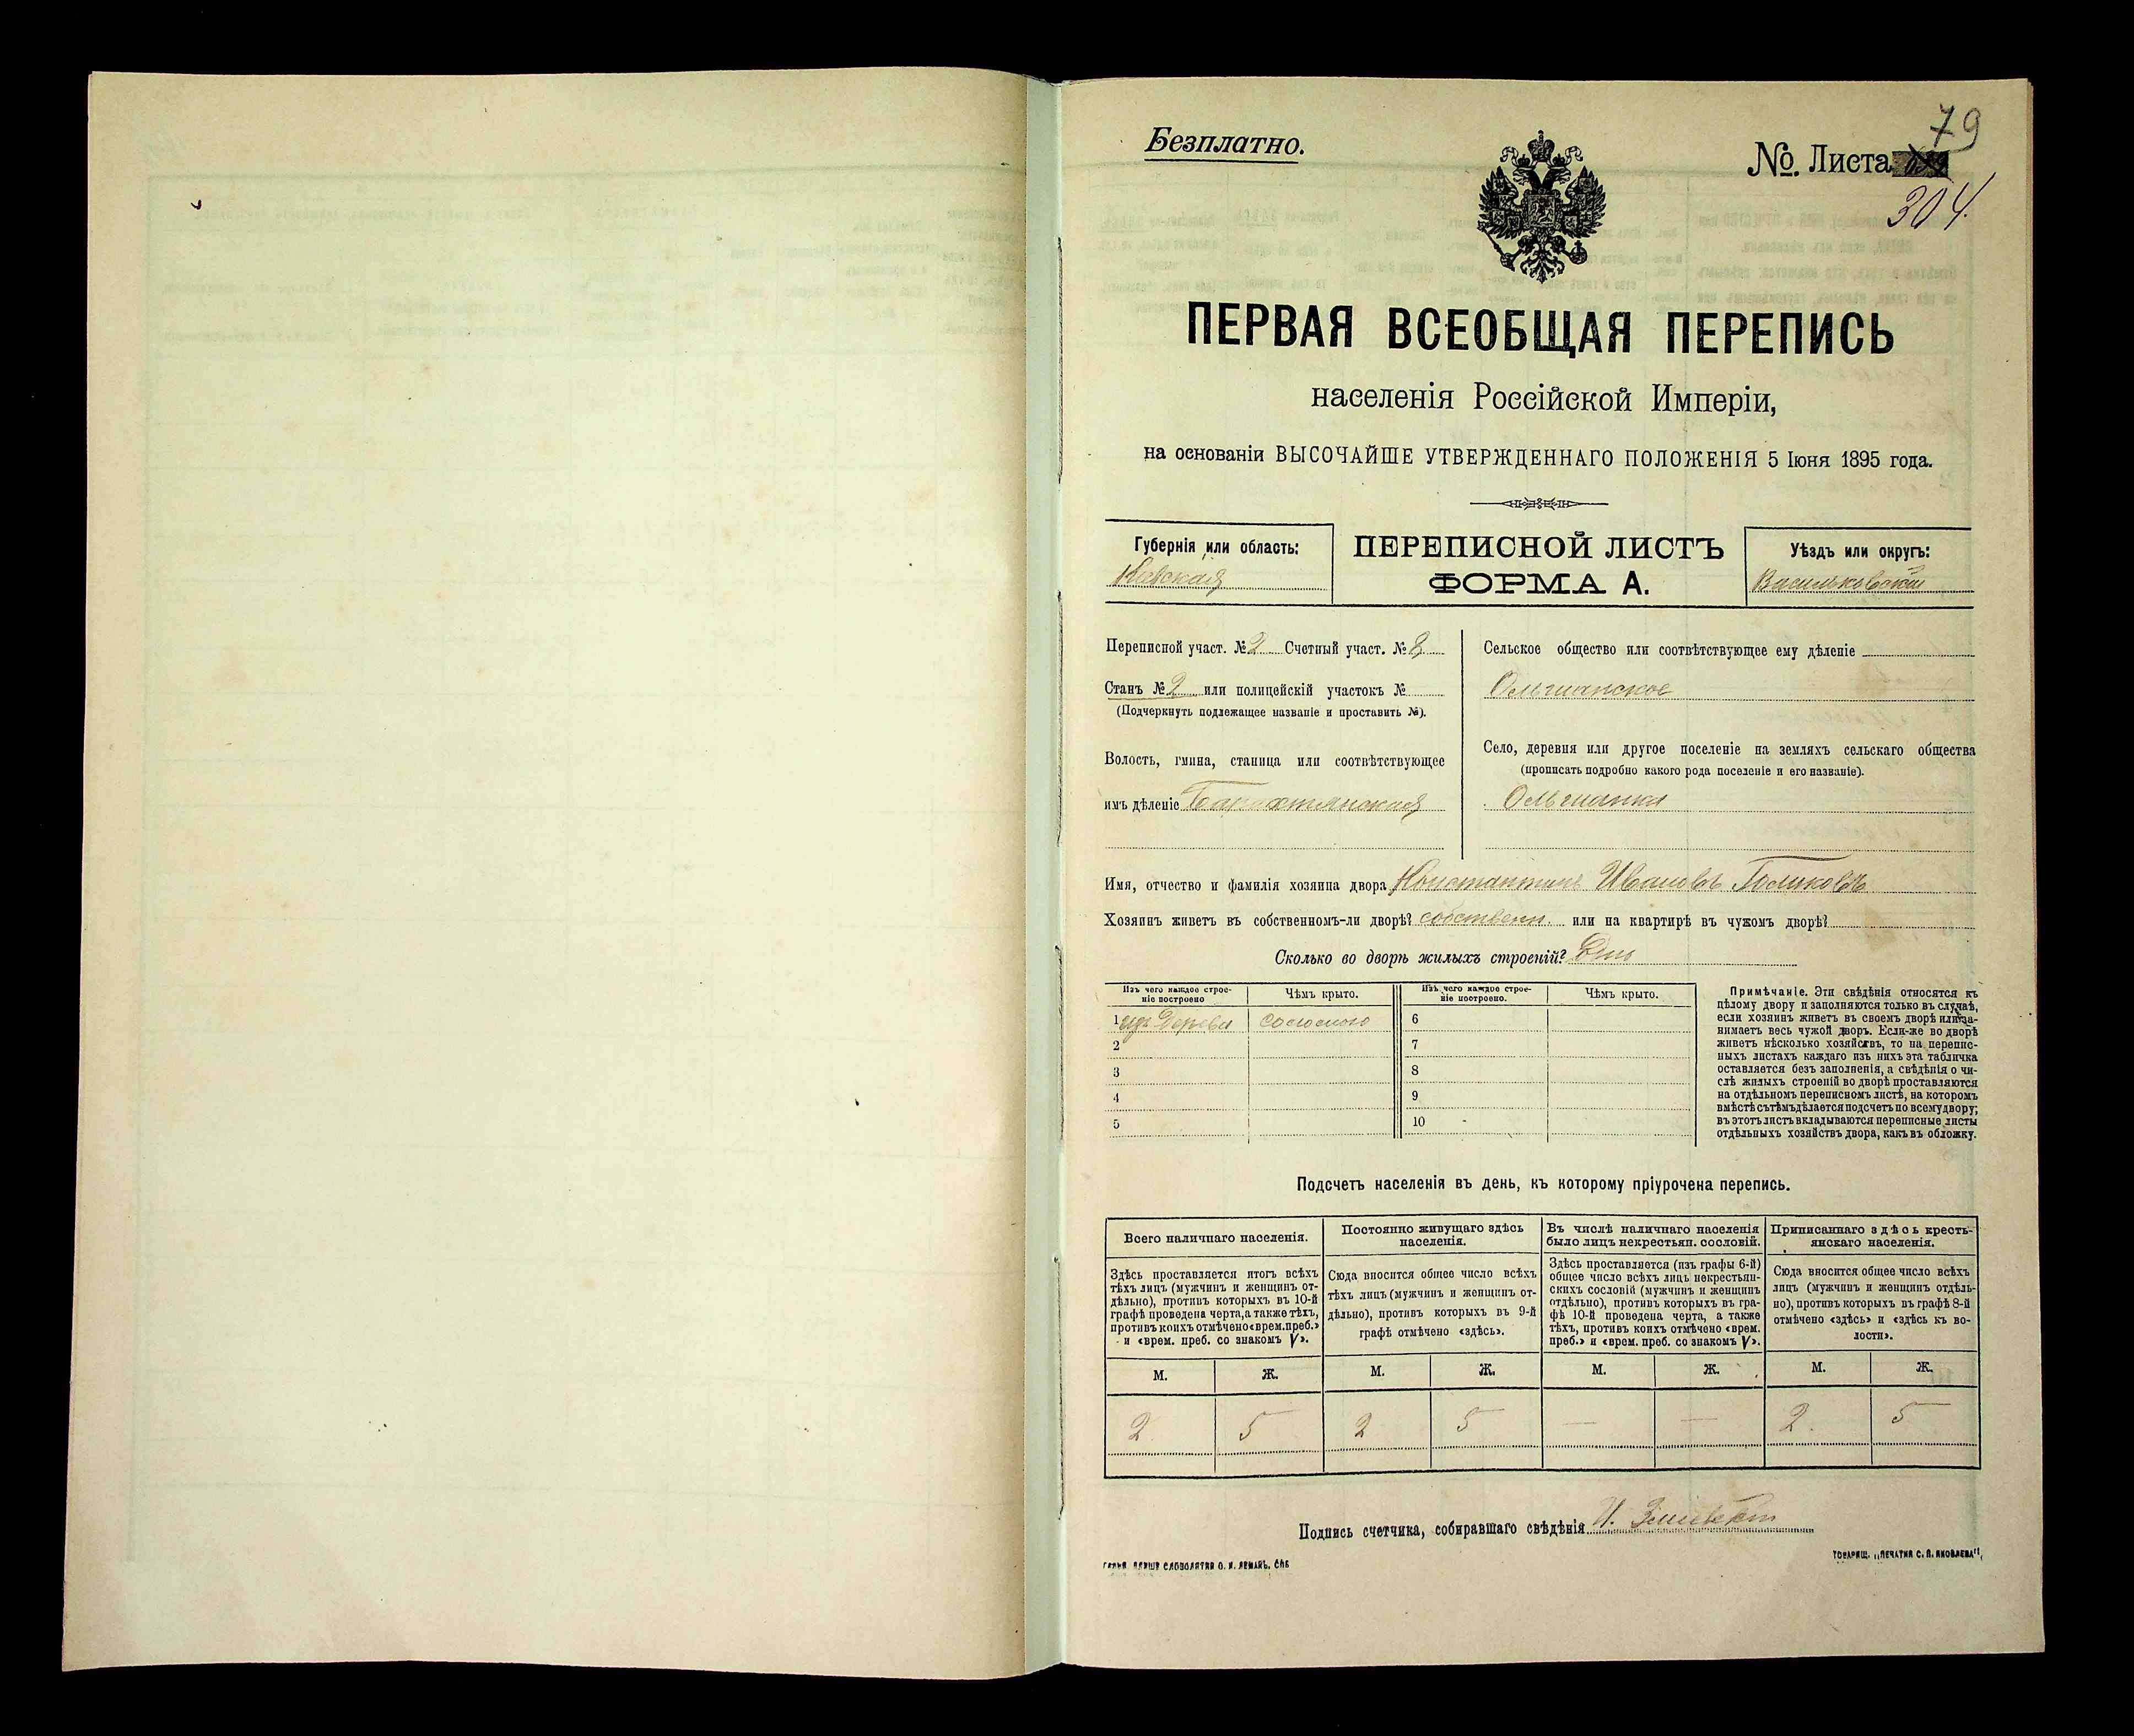 79
Безплатно.
№. Листа
304.
ПЕРВАЯ ВСЕОБЩАЯ ПЕРЕПИСЬ
населенія Россійской Имперіи,
на основаніи ВЫСОЧАЙШЕ УТВЕРЖДЕННАГО ПОЛОЖЕНІЯ 5 Іюня 1895 года.
Губернія или область:
Кіевская
ПЕРЕПИСНОЙ ЛИСТЪ
ФОРМА А.
Уѣздъ или округъ:
Васильковскій
Переписной участ. № 2 Счетный участ. № 8
Станъ № 2 или полицейскій участокъ №
(Подчеркнуть подлежащее названіе и проставить №).
Волость, гмина, станица или соотвѣтствующее
имъ дѣленіе Барахтянская
Сельское общество или соотвѣтствующее ему дѣленіе
Ольшанское
Село, деревня или другое поселеніе на земляхъ сельскаго общества
(прописать подробно какого рода поселеніе и его названіе).
Ольшанка
Имя, отчество и фамилія хозяина двора Константинъ Ивановъ Голиковъ
Хозяинъ живетъ въ собственномъ-ли дворѣ? собственн. или на квартирѣ въ чужомъ дворѣ?
Сколько во дворѣ жилыхъ строеній?
Изъ чего каждое строе-
ніе построено
Чѣмъ крыто.
1 изъ дерева соломою
2
3
4
5
Изъ чего каждое строе-
ніе построено.
Чѣмъ крыто.
6
7
8
9
10
Примѣчаніе. Эти свѣдѣнія относятся къ
цѣлому двору и заполняются только въ случаѣ,
если хозяинъ живетъ въ своемъ дворѣ или за-
нимаетъ весь чужой дворъ. Если-же во дворѣ
живетъ нѣсколько хозяйствъ, то на перепис-
ныхъ листахъ каждаго изъ нихъ эта табличка
оставляется безъ заполненія, а свѣдѣнія о чи-
слѣ жилыхъ строеній во дворѣ проставляются
на отдѣльномъ переписномъ листѣ, на которомъ
вмѣстѣ съ тѣмъ дѣлается подсчетъ по всему двору;
въ этотъ листъ вкладываются переписные листы
отдѣльныхъ хозяйствъ двора, какъ въ обложку.
Подсчетъ населенія въ день, къ которому пріурочена перепись.
Всего наличнаго населенія.
Здѣсь проставляется итогъ всѣхъ
тѣхъ лицъ (мужчинъ и женщинъ от-
дѣльно), противъ которыхъ въ 10-й
графѣ проведена черта, а также тѣхъ,
противъ коихъ отмѣчено «врем. преб.»
и «врем. преб. со знакомъ V».
Постоянно живущаго здѣсь
населенія.
Сюда вносится общее число всѣхъ
тѣхъ лицъ (мужчинъ и женщинъ от-
дѣльно), противъ которыхъ въ 9-й
графѣ отмѣчено «здѣсь».
Въ числѣ наличнаго населенія
было лицъ некрестьян. сословій.
Здѣсь проставляется (изъ графы 6-й)
общее число всѣхъ лицъ некрестьян-
скихъ сословій (мужчинъ и женщинъ
отдѣльно), противъ которыхъ въ гра-
фѣ 10-й проведена черта, а также
тѣхъ, противъ коихъ отмѣчено «врем.
преб.» и «врем. преб. со знакомъ V».
Приписаннаго здѣсь кресть-
янскаго населенія.
Сюда вносится общее число всѣхъ
лицъ (мужчинъ и женщинъ отдѣль-
но), противъ которыхъ въ графѣ 8-й
отмѣчено «здѣсь» и «здѣсь къ во-
лости».
М. Ж. М. Ж. М. Ж. М. Ж.
2 5 2 5 — — 2 5
Подпись счетчика, собиравшаго свѣдѣнія
СЛОВОЛИТНИ О. И. ЛЕМАНЪ, СПБ
ТОВАРИЩ. „ПЕЧАТНЯ С. П. ЯКОВЛЕВА“,